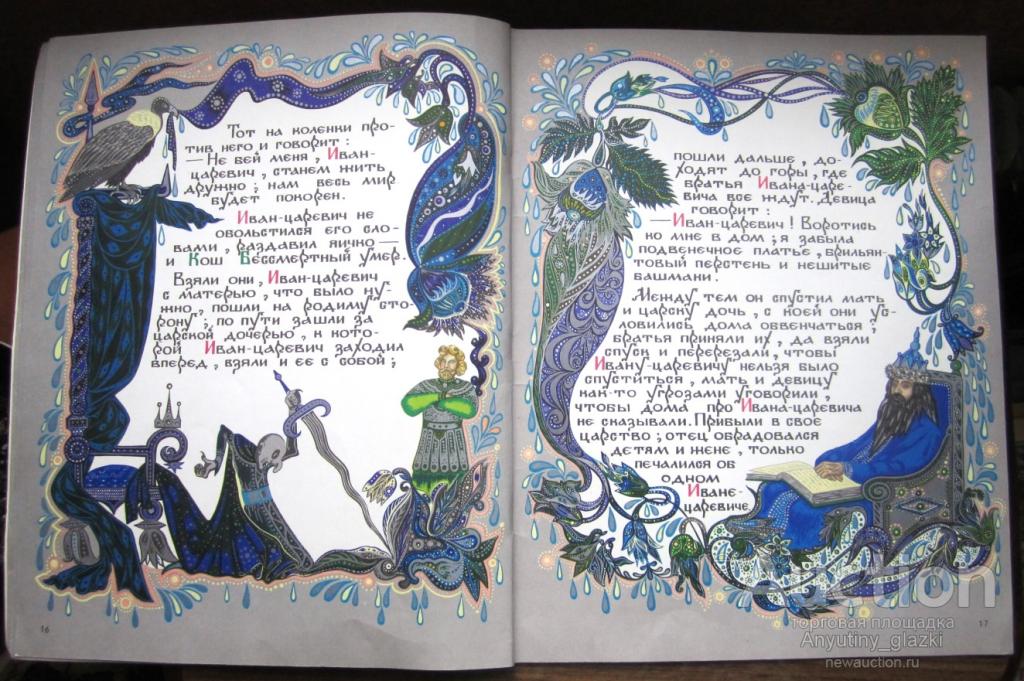 Тот на коленки про-
тив него и говорит:
— Не бей меня, Иван-
царевич, станем жить
дружно; нам весь мир
будет покорен.
Иван-царевич не
обольстился его сло-
вами, раздавил яичко —
и Кош Бессмертный умер.
Взяли они, Иван-царевич
с матерью, что было ну-
жно, пошли на родиму сто-
рону; по пути зашли за
царской дочерью, к кото-
рой Иван-царевич заходил
вперед, взяли и ее с собой;
16
пошли дальше, до-
ходят до горы, где
братья Ивана-царе-
вича все ждут. Девица
говорит:
— Иван-царевич! Воротись
ко мне в дом; я забыла
подвенечное платье, брильян-
товый перстень и нешитые
башмаки.
Между тем он спустил мать
и царску дочь, с коей они ус-
ловились дома обвенчаться;
братья приняли их, да взяли
спуск и перерезали, чтобы
Ивану-царевичу нельзя было
спуститься, мать и девицу
как-то угрозами уговорили,
чтобы дома про Ивана-царевича
не сказывали. Прибыли в свое
царство; отец обрадовался
детям и жене, только
печалился об
одном
Иване-
царевиче.
17
auction
торговая площадка
Anyutiny_glazki
newauction.ru